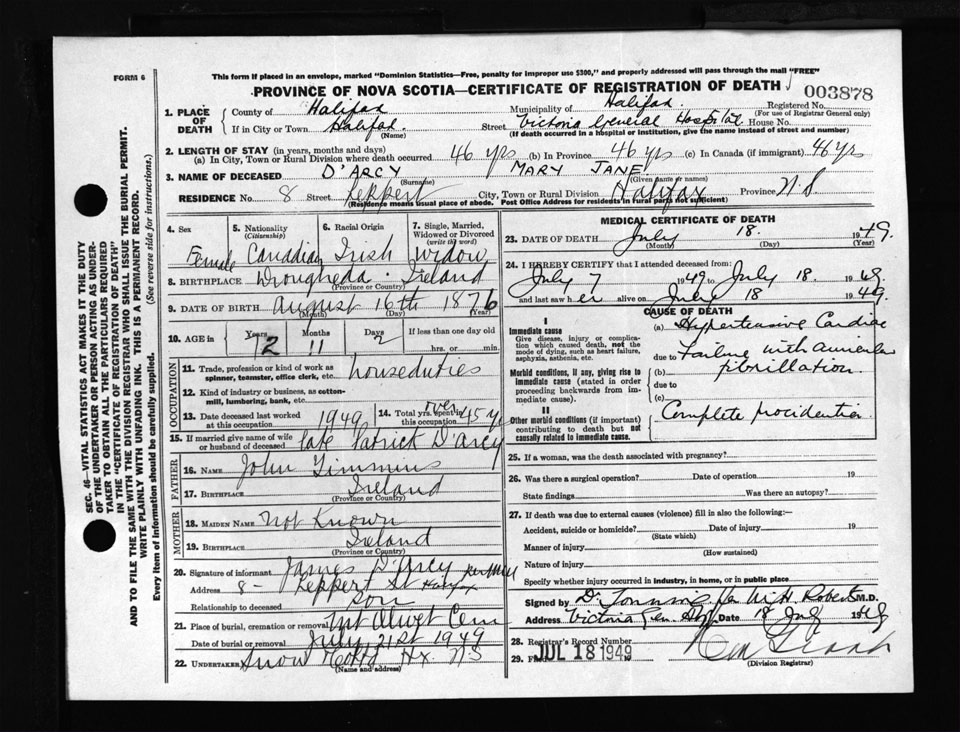 FORM 6
This form if placed in an envelope, marked "Dominion Statistics—Free, penalty for improper use $300," and properly addressed will pass through the mail "FREE"
PROVINCE OF NOVA SCOTIA—CERTIFICATE OF REGISTRATION OF DEATH 003878
1. PLACE OF DEATH County of Halifax Municipality of Halifax Registered No.
(For use of Registrar General only)
If in City or Town Halifax Street Victoria General Hospital House No.
(Name) (If death occurred in a hospital or institution, give the name instead of street and number)
2. LENGTH OF STAY (in years, months and days)
(a) In City, Town or Rural Division where death occurred 46 yrs (b) In Province 46 yrs (c) In Canada (if immigrant) 46 yrs
3. NAME OF DECEASED D'ARCY MARY JANE
(Surname) (Given name or names)
RESIDENCE No. 8 Street Leppert City, Town or Rural Division Halifax Province N.S
(Residence means usual place of abode. Post Office Address for residents in rural parts not sufficient)
4. Sex Female
5. Nationality (Citizenship) Canadian
6. Racial Origin Irish
7. Single, Married, Widowed or Divorced (write the word) Widow
8. BIRTHPLACE Drougheda. Ireland
(Province or Country)
9. DATE OF BIRTH August 16th 1876
(Month) (Day) (Year)
10. AGE in Years 72 Months 11 Days 2 If less than one day old
hrs. or min.
OCCUPATION
11. Trade, profession or kind of work as spinner, teamster, office clerk, etc. houseduties
12. Kind of industry or business, as cotton-mill, lumbering, bank, etc.
13. Date deceased last worked at this occupation 1949 14. Total yrs. spent in this occupation over 45 y
15. If married give name of wife or husband of deceased late Patrick D'arcy
FATHER
16. NAME John Timmins
17. BIRTHPLACE Ireland
(Province or Country)
MOTHER
18. MAIDEN NAME Not Known
19. BIRTHPLACE Ireland
(Province or Country)
20. Signature of informant James D'Arcy
Address 8 - Leppert St Halifax
Relationship to deceased son
21. Place of burial, cremation or removal Mt Olivet Cem
Date of burial or removal July 21st 1949
22. UNDERTAKER Snow & Co Ltd Hx. NS
(Name and address)
MEDICAL CERTIFICATE OF DEATH
23. DATE OF DEATH July 18. 1949.
(Month) (Day) (Year)
24. I HEREBY CERTIFY that I attended deceased from:
July 7 1949 to July 18. 1949.
and last saw her alive on July 18 1949.
CAUSE OF DEATH
I
Immediate cause
Give disease, injury or complication which caused death, not the mode of dying, such as heart failure, asphyxia, asthenia, etc.
(a) Hypertensive Cardiac
due to Failure with auricular
Morbid conditions, if any, giving rise to immediate cause (stated in order proceeding backwards from immediate cause).
(b) fibrillation.
due to
(c)
II
Other morbid conditions (if important) contributing to death but not causally related to immediate cause.
Complete procidentia
25. If a woman, was the death associated with pregnancy?
26. Was there a surgical operation? Date of operation 19
State findings Was there an autopsy?
27. If death was due to external causes (violence) fill in also the following:—
Accident, suicide or homicide? Date of injury 19
(State which)
Manner of injury
(How sustained)
Nature of injury
Specify whether injury occurred in industry, in home, or in public place
Signed by Dr. per W.H. Roberts M.D.
Address Victoria Gen. Date 18 July 1949
28. Registrar's Record Number
29. JUL 18 1949
(Division Registrar)
SEC. 46—VITAL STATISTICS ACT MAKES IT THE DUTY
OF THE UNDERTAKER OR PERSON ACTING AS UNDERTAKER
TO OBTAIN ALL THE PARTICULARS REQUIRED
IN THE "CERTIFICATE OF REGISTRATION OF DEATH"
AND TO FILE THE SAME WITH THE DIVISION REGISTRAR WHO SHALL ISSUE THE BURIAL PERMIT.
WRITE PLAINLY WITH UNFADING INK. THIS IS A PERMANENT RECORD.
Every item of information should be carefully supplied. (See reverse side for instructions.)